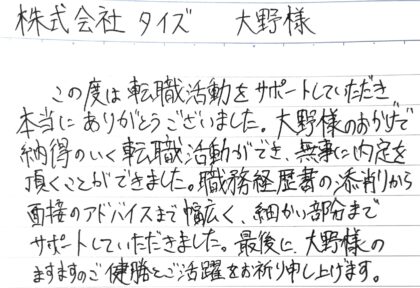 株式会社 タイズ 大野様
この度は転職活動をサポートしていただき
本当にありがとうございました。大野様のおかげで
納得のいく転職活動ができ、無事に内定を
頂くことができました。職務経歴書の添削から
面接のアドバイスまで幅広く、細かい部分まで
サポートしていただきました。最後に、大野様の
ますますのご健勝とご活躍をお祈り申し上げます。